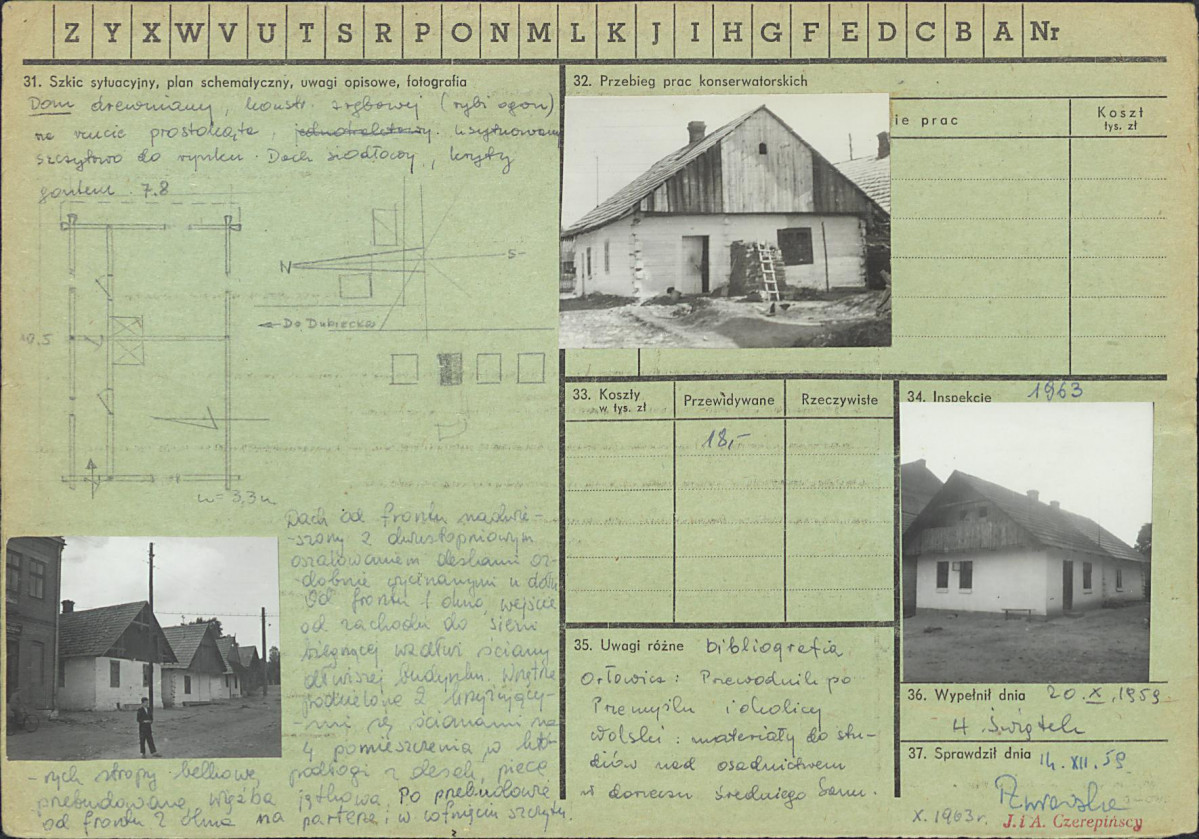 Z Y X W V U T S R P O N M L K J I H G F E D C B A Nr
31. Szkic sytuacyjny, plan schematyczny, uwagi opisowe, fotografia
Dom drewniany, konstr. zrębowej (rybi ogon)
na rzucie prostokąta, jednotraktowy. Usytuowany
szczytowo do rynku. Dach siodłowy, kryty
gontem
7.8
N
S
Do Dubiecka
w = 3,3 m
Dach od frontu nadwie-
-szony z dwustopniowym
oszalowaniem deskami oz-
dobnie wycinanymi u dołu
Od frontu 1 okno, wejście
od zachodu do sieni
biegnącej wzdłuż ściany
dłuższej budynku. Wnętrze
podzielone 2 krzyżujący-
-mi się ścianami na
4 pomieszczenia, w któ-
-rych stropy belkowe, podłogi z desek, piece
przebudowane, więźba jętkowa. Po przebudowie
od frontu 2 okna na parterze i w cofnięciu szczytu.
32. Przebieg prac konserwatorskich
ie prac
Koszt
tys. zł
33. Koszty
w tys. zł
Przewidywane
Rzeczywiste
18,-
34. Inspekcje
1963
35. Uwagi różne bibliografia
Orłowicz: Przewodnik po
Przemyślu i okolicy
Wolski: materiały do stu-
diów nad osadnictwem
w dorzeczu średniego Sanu.
36. Wypełnił dnia 20.X.1959
H. Świątek
37. Sprawdził dnia 14.XII.59
X.1963r. J. i A. Czerepińscy